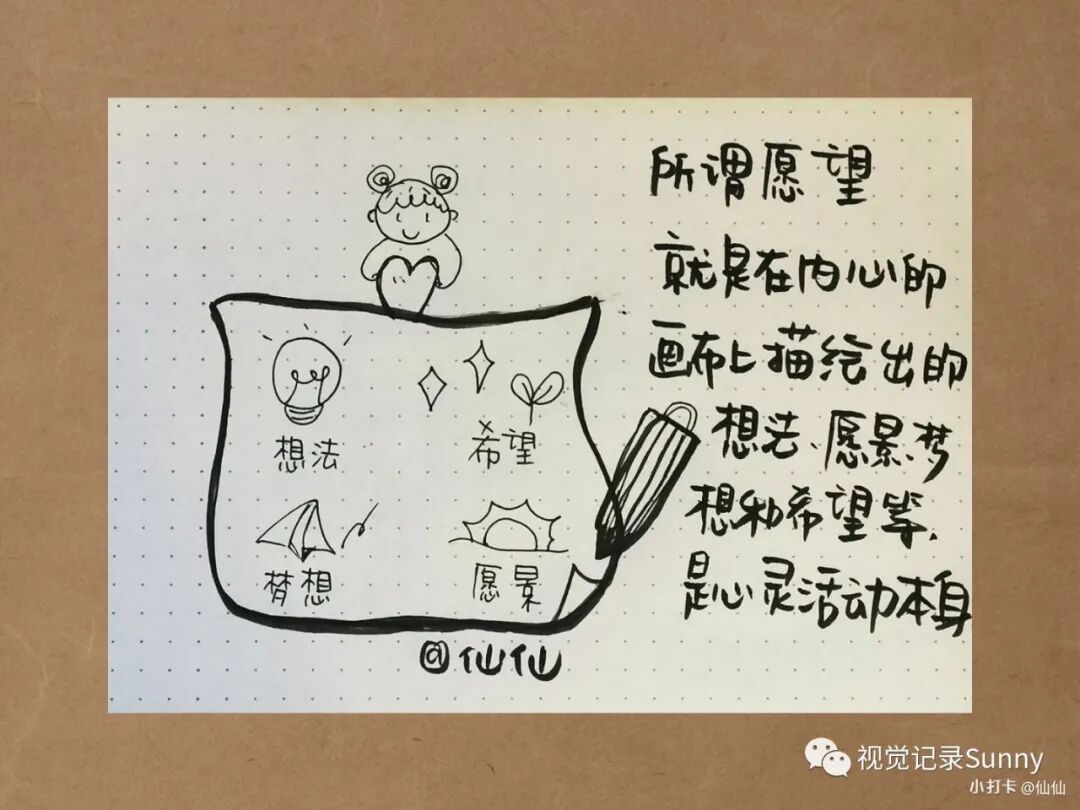 所谓愿望
就是在内心的
画布上描绘出的
想法、愿景、梦
想和希望等、
是心灵活动本身
想法
希望
梦想
愿景
@仙仙
视觉记录Sunny
小打卡 @仙仙